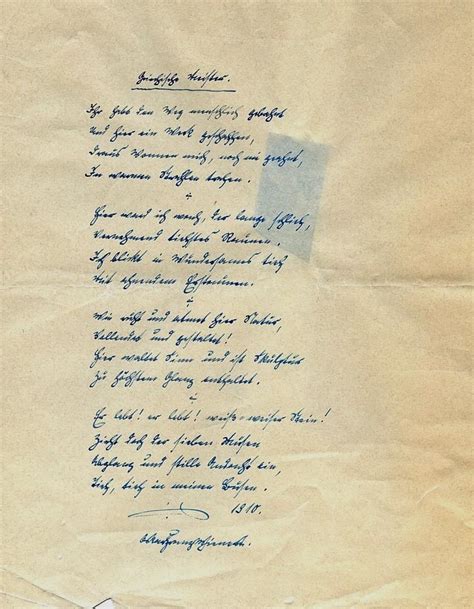 Griechische Meister.
Ihr habt den Weg menschlich gebahnt
Und hier ein Werk geschaffen,
Draus Wonnen mich, noch nie geahnt,
In warmen Strahlen trafen.
Hier ward ich wach, der lange schlief,
Vernehmend tiefstes Raunen.
Ich blickt in Wundersames tief
Mit ahnendem Erstaunen.
Wie ruht und atmet hier Natur,
Vollendet und gestaltet!
Hier waltet Sinn und ist Skulptur
Zu höchstem Glanz entfaltet.
Er lebt! er lebt! weiß-weiser Stein!
Zieht doch der sieben Musen
Abglanz und stille Andacht ein,
Tief, tief in meinen Busen.
1910.